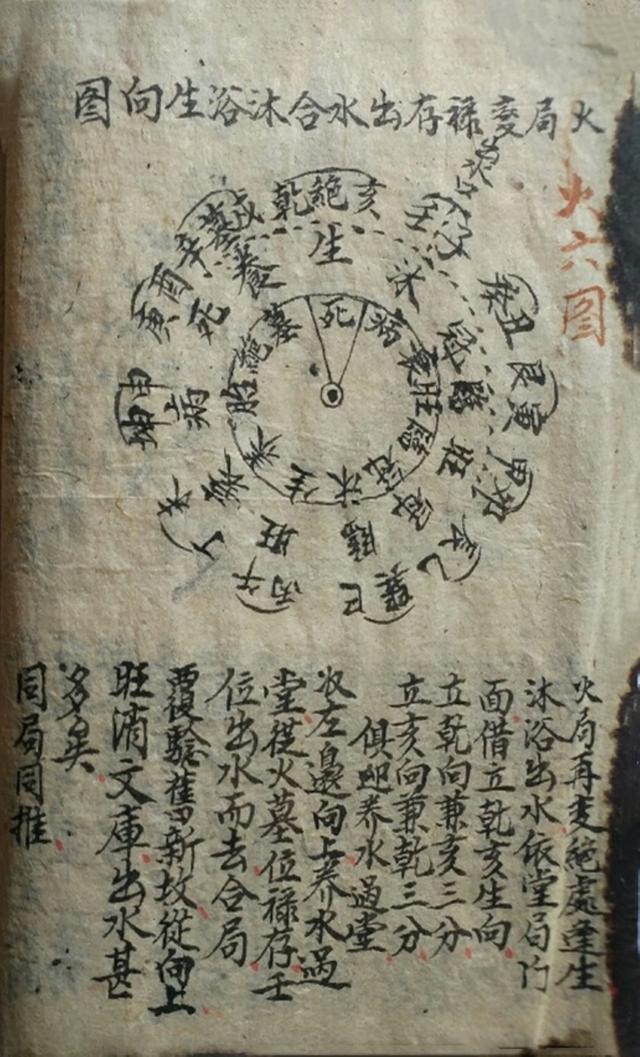 火局變禄存出水合沐浴生向图
火六图
乾絕亥
壬子
癸丑
艮寅
甲卯
乙辰
巽巳
丙午
丁未
坤申
庚酉
辛墓戌
生
沐
冠
臨
旺
病
死
養
死
病
衰
旺
臨
冠
沐
生
养
胎
絕
墓
火局再变絕處逢生
沐浴出水依堂局门
面借立乾亥生向
立乾向兼亥三分
立亥向兼乾三分
俱迎养水過堂
收左邊向上养水過
堂從火墓位禄存壬
位出水而去合局
覆驗舊新坟從向上
旺消文庫出水甚
多矣
同局同推